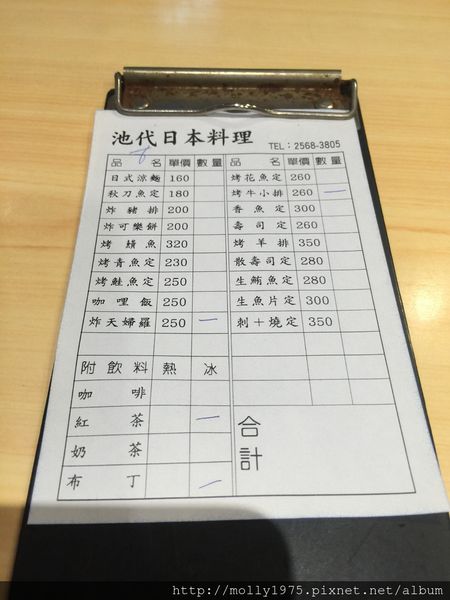 池代日本料理
TEL：2568-3805
品名 單價 數量 品名 單價 數量
日式涼麵 160 烤花魚定 260
秋刀魚定 180 烤牛小排 260 一
炸豬排 200 香魚定 300
炸可樂餅 200 壽司定 260
烤鰻魚 320 烤羊排 350
烤青魚定 230 散壽司定 280
烤鮭魚定 250 生鮪魚定 280
咖哩飯 250 生魚片定 300
炸天婦羅 250 一 刺＋燒定 350
附飲料 熱 冰
咖啡
紅茶 一
奶茶
布丁 一
合計
http://molly1975.pixnet.net/album